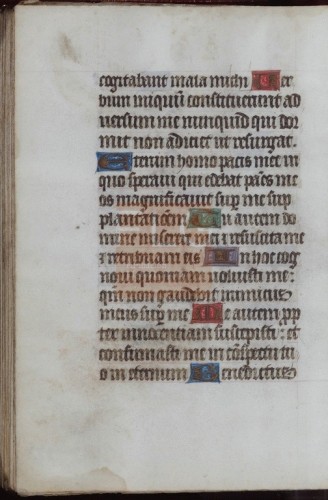 cogitabant mala michi Uer
bum iniquū constituerunt ad
uersum me nunquid qui dor
mit non adiciet ut resurgat.
Etenim homo pacis mee in
quo speraui qui edebat panes me
os magnificauit sup me sup
plantationem Tu autem do
mine miserere mei z resuscita me
z retribuam eis In hoc cog
noui quoniam uoluisti me:
qm̄ non gaudebit inimicus
meus sup me Me autem pp
ter innocentiam suscepisti: et
confirmasti me in cōspectu tu
o in eternum Benedictus